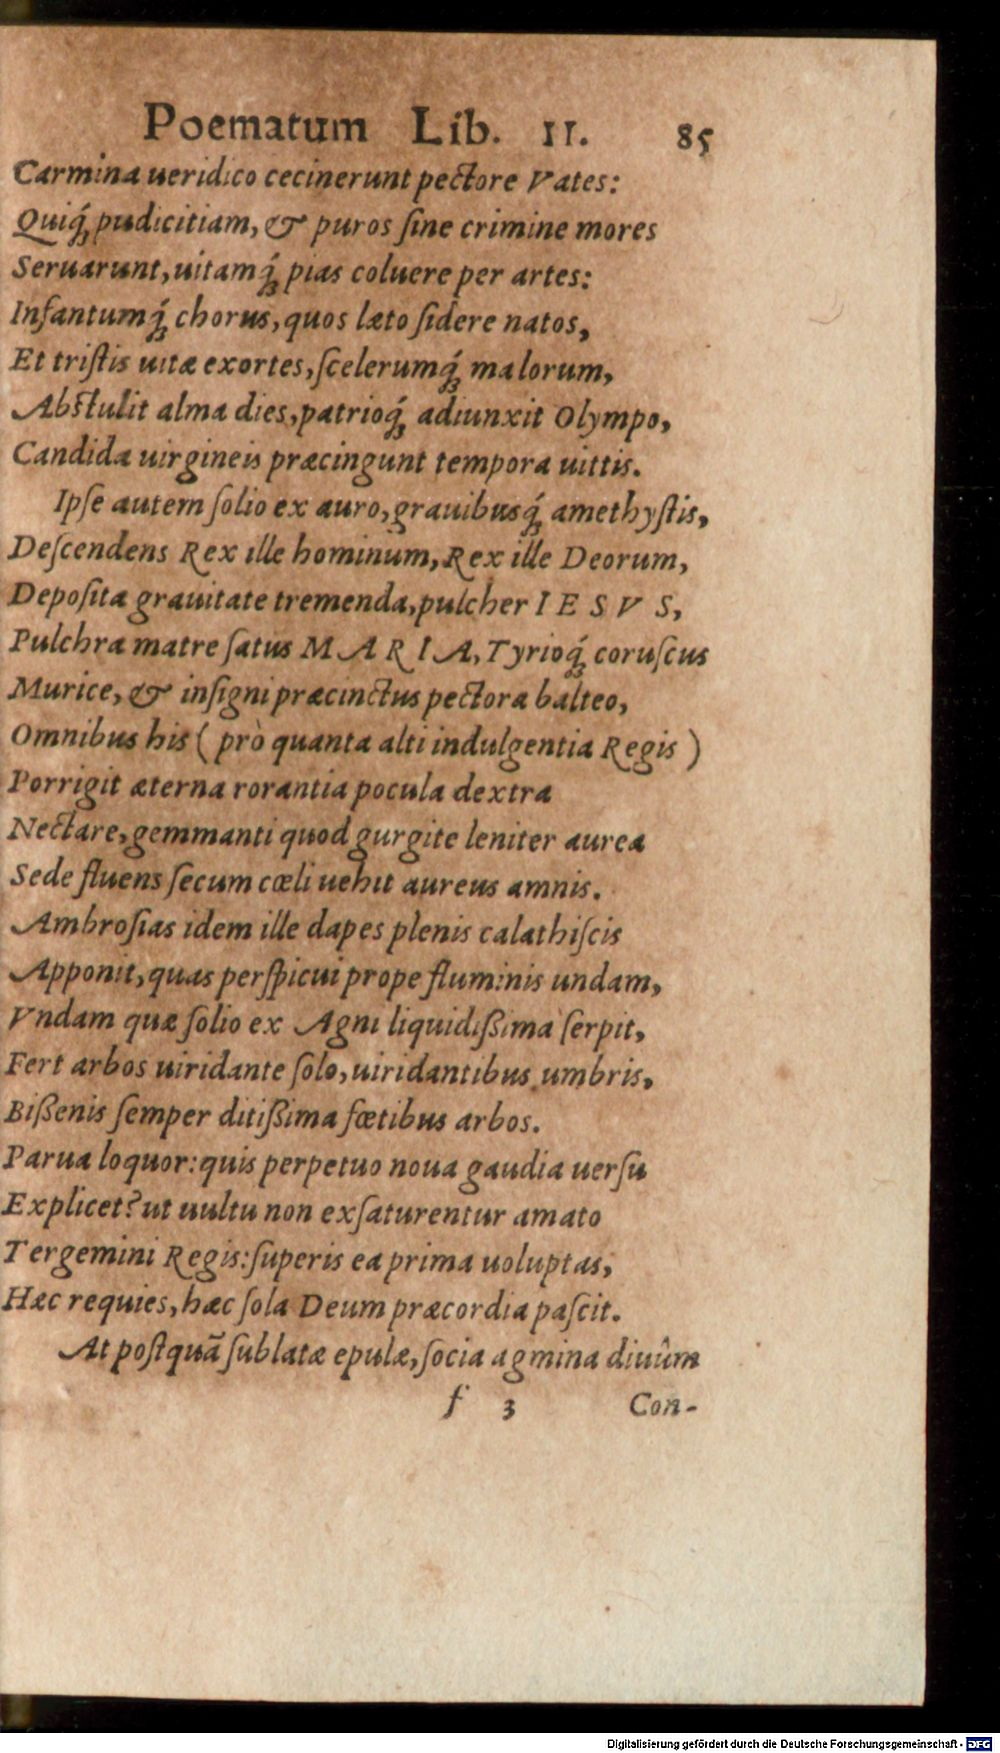 Poematum Lib. II. 85
Carmina ueridico cecinerunt pectore Vates:
Quiq́ꝫ pudicitiam, & puros ſine crimine mores
Seruarunt, uitamq́ꝫ pias coluere per artes:
Infantumq́ꝫ chorus, quos læto ſidere natos,
Et triſtis uitæ exortes, ſcelerumq́ꝫ malorum,
Abſtulit alma dies, patrioq́ꝫ adiunxit Olympo,
Candida uirgineis præcingunt tempora uittis.
Ipſe autem ſolio ex auro, grauibusq́ꝫ amethyſtis,
Deſcendens Rex ille hominum, Rex ille Deorum,
Depoſita grauitate tremenda, pulcher I E S V S,
Pulchra matre ſatus M A R I A, Tyrioq́ꝫ coruſcus
Murice, & inſigni præcinctus pectora balteo,
Omnibus his ( prò quanta alti indulgentia Regis )
Porrigit æterna rorantia pocula dextra
Nectare, gemmanti quod gurgite leniter aurea
Sede fluens ſecum cœli uehit aureus amnis.
Ambroſias idem ille dapes plenis calathiſcis
Apponit, quas perſpicui prope fluminis undam,
Vndam quæ ſolio ex Agni liquidißima ſerpit,
Fert arbos uiridante ſolo, uiridantibus umbris,
Bißenis ſemper ditißima fœtibus arbos.
Parua loquor: quis perpetuo noua gaudia uerſu
Explicet? ut uultu non exſaturentur amato
Tergemini Regis: ſuperis ea prima uoluptas,
Hæc requies, hæc ſola Deum præcordia paſcit.
At poſtquã ſublatæ epulæ, ſocia agmina diuûm
f 3 Con-
Digitalisierung gefördert durch die Deutsche Forschungsgemeinschaft - DFG